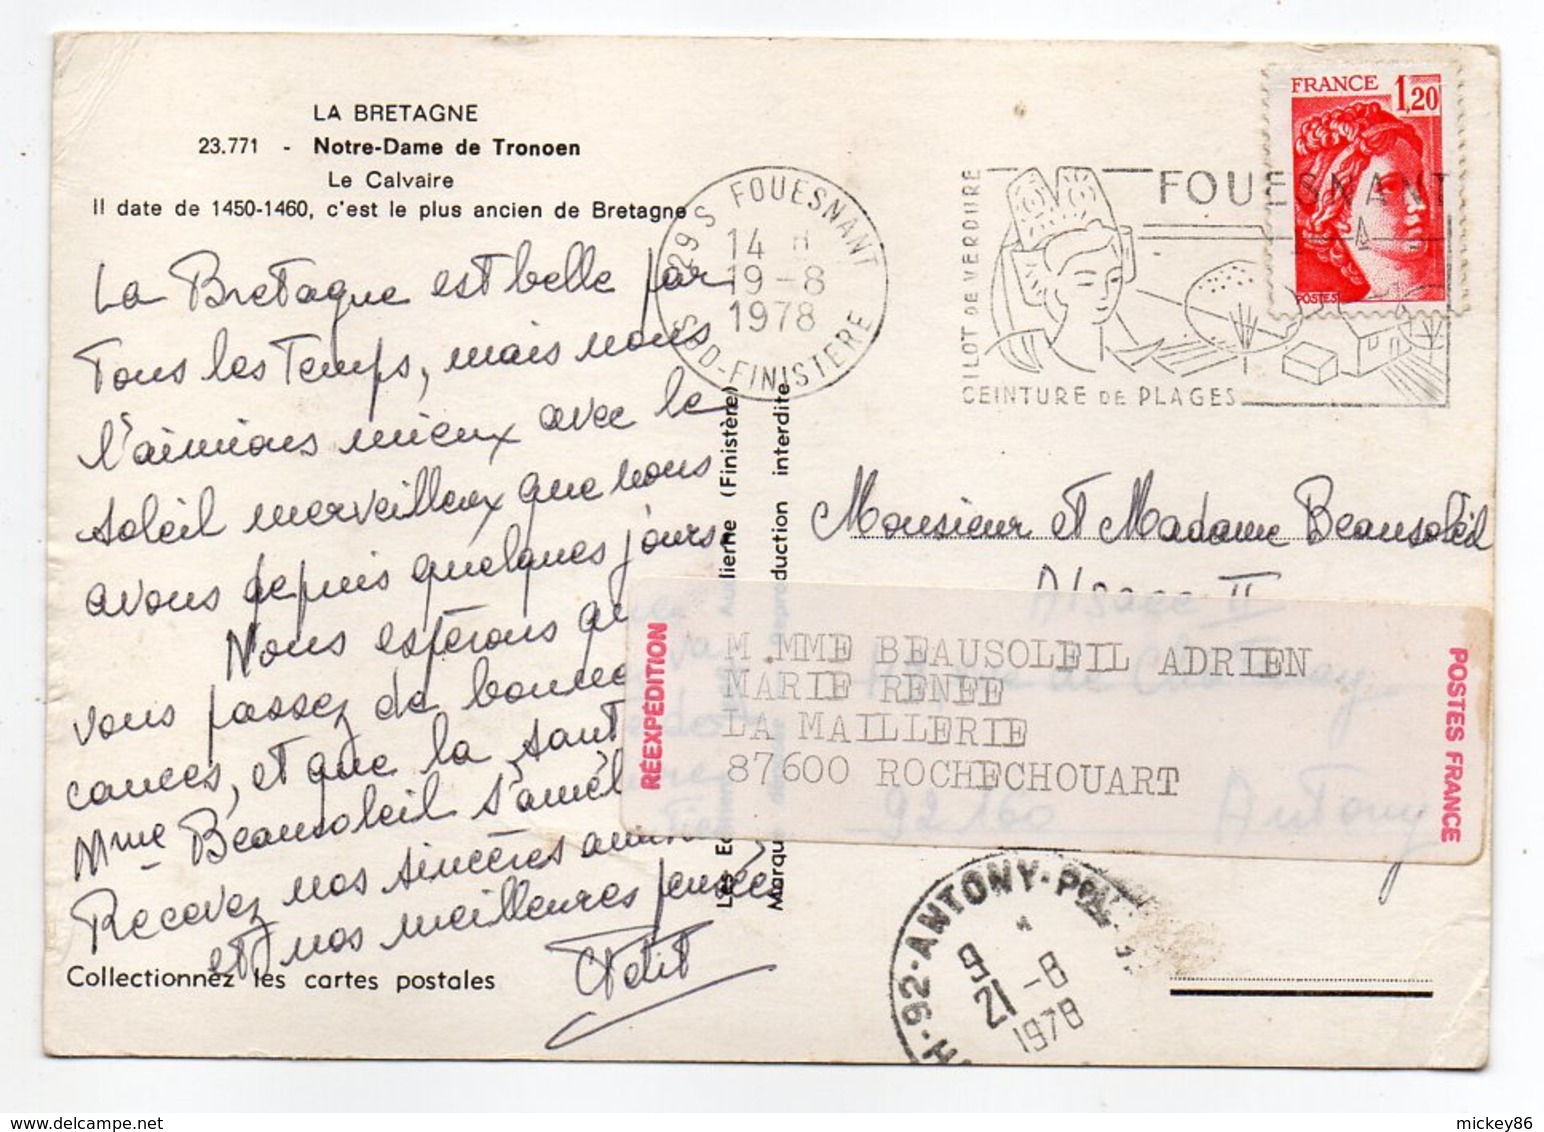 LA BRETAGNE
23.771 - Notre-Dame de Tronoen
Le Calvaire
Il date de 1450-1460, c'est le plus ancien de Bretagne
La Bretagne est belle par
Tous les Temps, mais nous
l'aimions mieux avec le
soleil merveilleux que nous
avons depuis quelques jours
Nous espérons qu
vous passez de bonne
cances, et que la sant
Mme Beausoleil s'amél
Recevez nos sincères ami
et nos meilleures pensées
Petit
Collectionnez les cartes postales
29 S FOUESNANT
14 H
19-8
1978
SUD-FINISTERE
FOUESNANT
GILOT DE VERDURE
CEINTURE DE PLAGES
FRANCE 1,20
POSTES
(Finistère)
interdite
Monsieur et Madame Beausoleil
Alsace II
RÉEXPÉDITION
M MME BEAUSOLEIL ADRIEN
MARIE RENEE
LA MAILLERIE
87600 ROCHECHOUART
POSTES FRANCE
92160 Antony
92-ANTONY-PPAL
9H
21-8
1978
mickey86